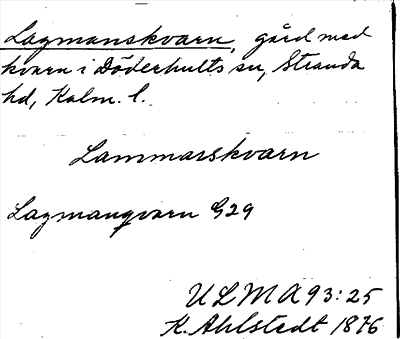 Lagmanskvarn, gård med
kvarn i Döderhults sn, Stranda
hd, Kalm. l.
Lammarskvarn
Lagmanqvarn G29
ULMA 93:25
K. Ahlstedt 1876